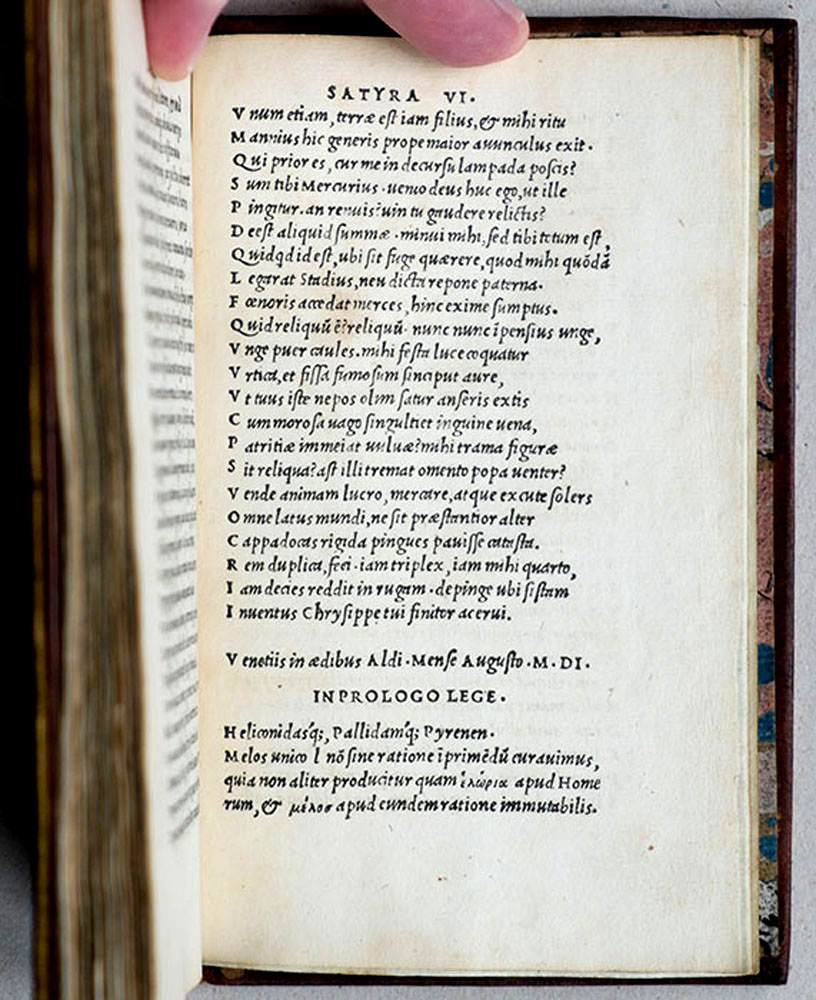 SATYRA VI.
Vnum etiam, terræ est iam filius, & mihi ritu
Mannius hic generis prope maior auunculus exit.
Qui prior es, cur me in decursu lampada poscis?
Sum tibi Mercurius. uenio deus huc ego, ut ille
Pingitur. an renuis? uin tu gaudere relictis?
Deest aliquid summæ. minui mihi, sed tibi totum est,
Quidqd id est, ubi sit fuge quærere, quod mihi quōdā
Legarat Stadius, neu dicta repone paterna.
Fœnoris accedat merces, hinc exime sumptus.
Quid reliquū ē? reliquū. nunc nunc īpensius unge,
Vnge puer caules. mihi festa luce coquatur
Vrtica, et fissa fumosum sinciput aure,
Vt tuus iste nepos olim satur anseris extis
Cum morosa uago singultiet inguine uena,
Patritiæ immeiat uuluæ? mihi trama figuræ
Sit reliqua? ast illi tremat omento popa uenter?
Vende animam lucro, mercare, atque excute solers
Omne latus mundi, ne sit præstantior alter
Cappadocas rigida pingues pauisse catasta.
Rem duplica, feci. iam triplex, iam mihi quarto,
Iam decies reddit in rugam. depinge ubi sistam
Inuentus Chrysippe tui finitor acerui.
Venetiis in ædibus Aldi. Mense Augusto. M. DI.
IN PROLOGO LEGE.
Heliconidasq;, Pallidamq; Pyrenen.
Melos unico l nō sine ratione īprimēdū curauimus,
quia non aliter producitur quam ἑλώρια apud Home
rum, & μέλος apud eundem ratione immutabilis.